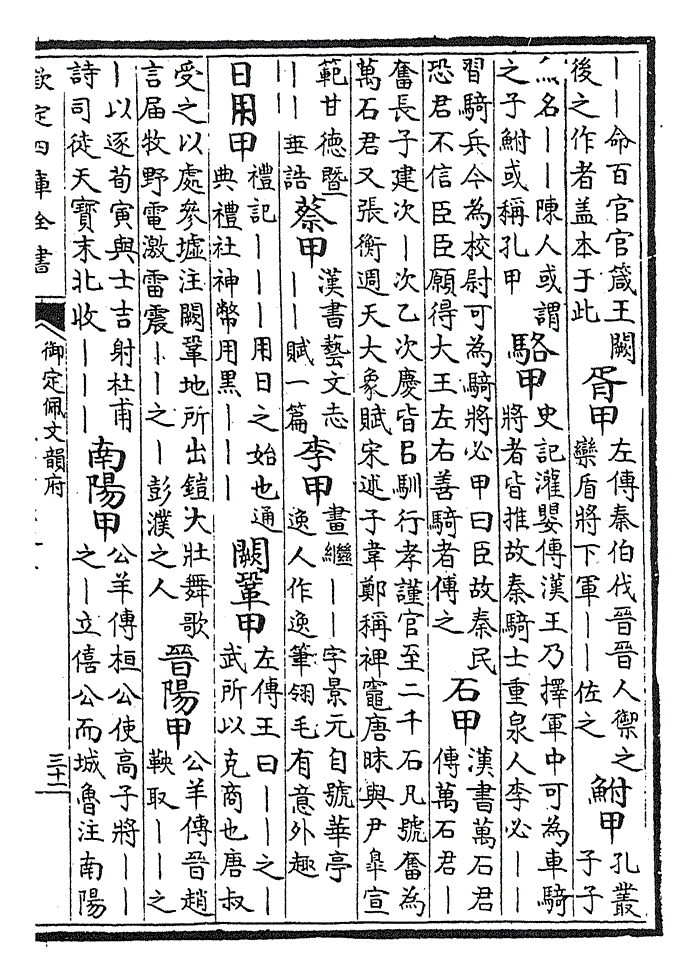 丨丨命百官官箴王闕
後之作者盖本于此
胥甲
左傳秦伯伐晉晉人禦之
欒盾將下軍丨丨佐之
鮒甲
孔叢
子子
魚名丨丨陳人或謂
之子鮒或稱孔甲
駱甲
史記灌嬰傳漢王乃擇軍中可為車騎
將者皆推故秦騎士重泉人李必丨丨
習騎兵今為校尉可為騎將必甲曰臣故秦民
恐君不信臣臣願得大王左右善騎者傳之
石甲
漢書萬石君
傳萬石君丨
奮長子建次丨次乙次慶皆㠯馴行孝謹官至二千石凡號奮為
萬石君又張衡週天大象賦宋述子韋鄭稱裨竈唐昧與尹皐宣
範甘德暨
丨丨垂誥
蔡甲
漢書藝文志
丨丨賦一篇
李甲
畫繼丨丨字景元自號華亭
逸人作逸筆翎毛有意外趣
日用甲
禮記丨丨丨用日之始也通
典禮社神幣用黑丨丨丨
闕鞏甲
左傳王曰丨丨之丨
武所以克商也唐叔
受之以處參墟注闕鞏地所出鎧大壯舞歌
言屆牧野電激雷震丨丨之丨彭濮之人
晉陽甲
公羊傳晉趙
鞅取丨丨之
丨以逐荀寅與士吉射杜甫
詩司徒天寶末北收丨丨丨
南陽甲
公羊傳桓公使高子將丨丨
之丨立僖公而城魯注南陽
欽定四庫全書
御定佩文韻府
三十二